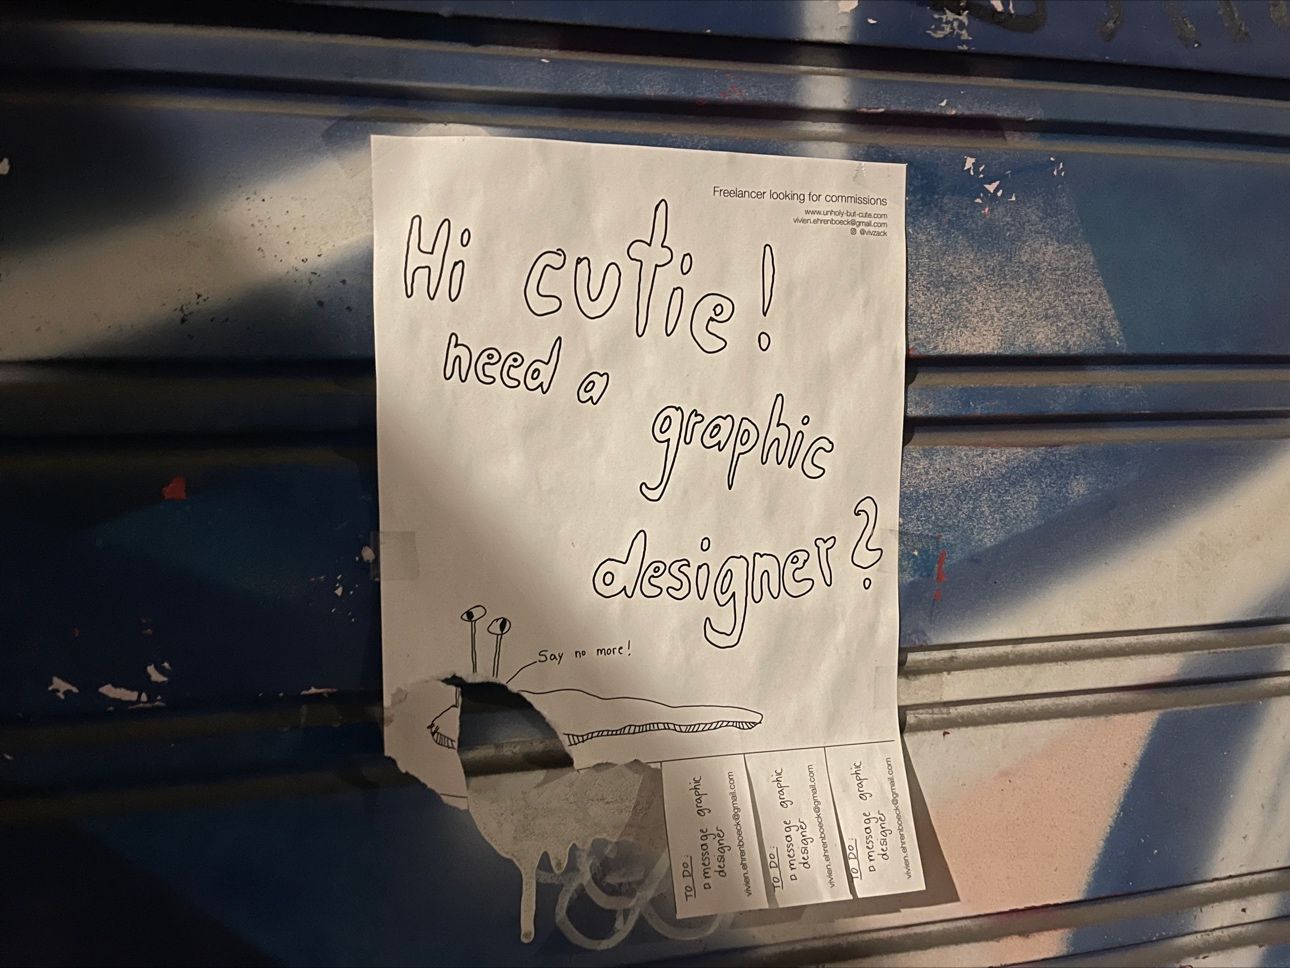 Freelancer looking for commissions
www.unholy-but-cute.com
vivien.ehrenboeck@gmail.com
@vivzack
Hi cutie!
need a
graphic
designer?
Say no more!
TO DO:
message graphic
designer
vivien.ehrenboeck@gmail.com
TO DO:
message graphic
designer
vivien.ehrenboeck@gmail.com
TO DO:
message graphic
designer
vivien.ehrenboeck@gmail.com